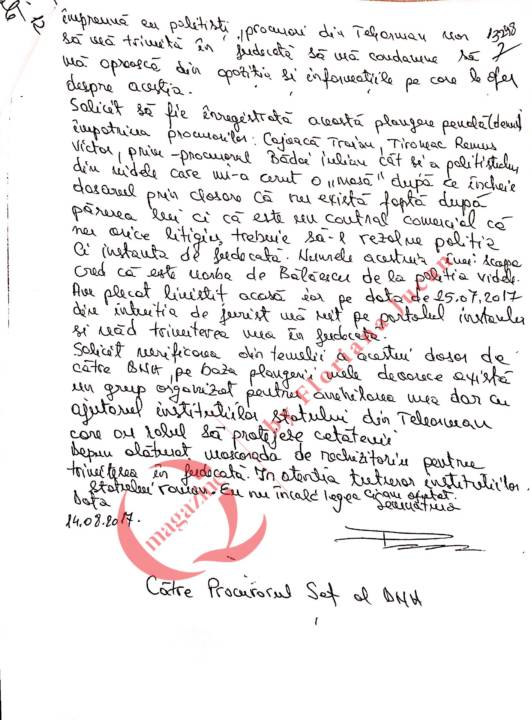 împreună cu polițiști, procurori din Teleorman vor 13298
să mă trimită în judecată să mă condamne să 7
mă oprească din opoziția și informațiile pe care le ofer
despre aceștia.
Solicit să fie înregistrată această plangere penală (denunț
împotriva procurorilor: Cojoacă Traian, Tironeac Remus
Victor, prim-procurorul Bădoi Iulian cât și a polițistului
din Videle care mi-a cerut o "masă" după ce încheie
dosarul prin clasare că nu există faptă după
părerea lui ci că este un contract comercial că
nu orice litigiu, trebuie să-l rezolve poliția
Ci instanta de judecată. Numele acestuia îmi scapa
Cred că este vorba de Bălăescu de la poliția Videle.
Am plecat liniștit acasă iar pe data de 25.07.2017
din intuiția de jurist mă uit pe portalul instanței
și văd trimiterea mea în judecată.
Solicit verificarea din temelii a acestui dosar de
către DNA, pe baza plangerii mele deoarece există
un grup organizat pentru anihilarea mea dar cu
ajutorul instituțiilor statului din Teleorman
care au rolul să protejeze cetățenii
Depun alăturat mascarada de rechizitoriu pentru
trimiterea în judecată. În atenția tuturor instituțiilor
Statului roman. Eu nu încalc legea
Data Semnătura
24.08.2017.
Către Procurorul Șef al DNA
magazin by Floriana Jucan